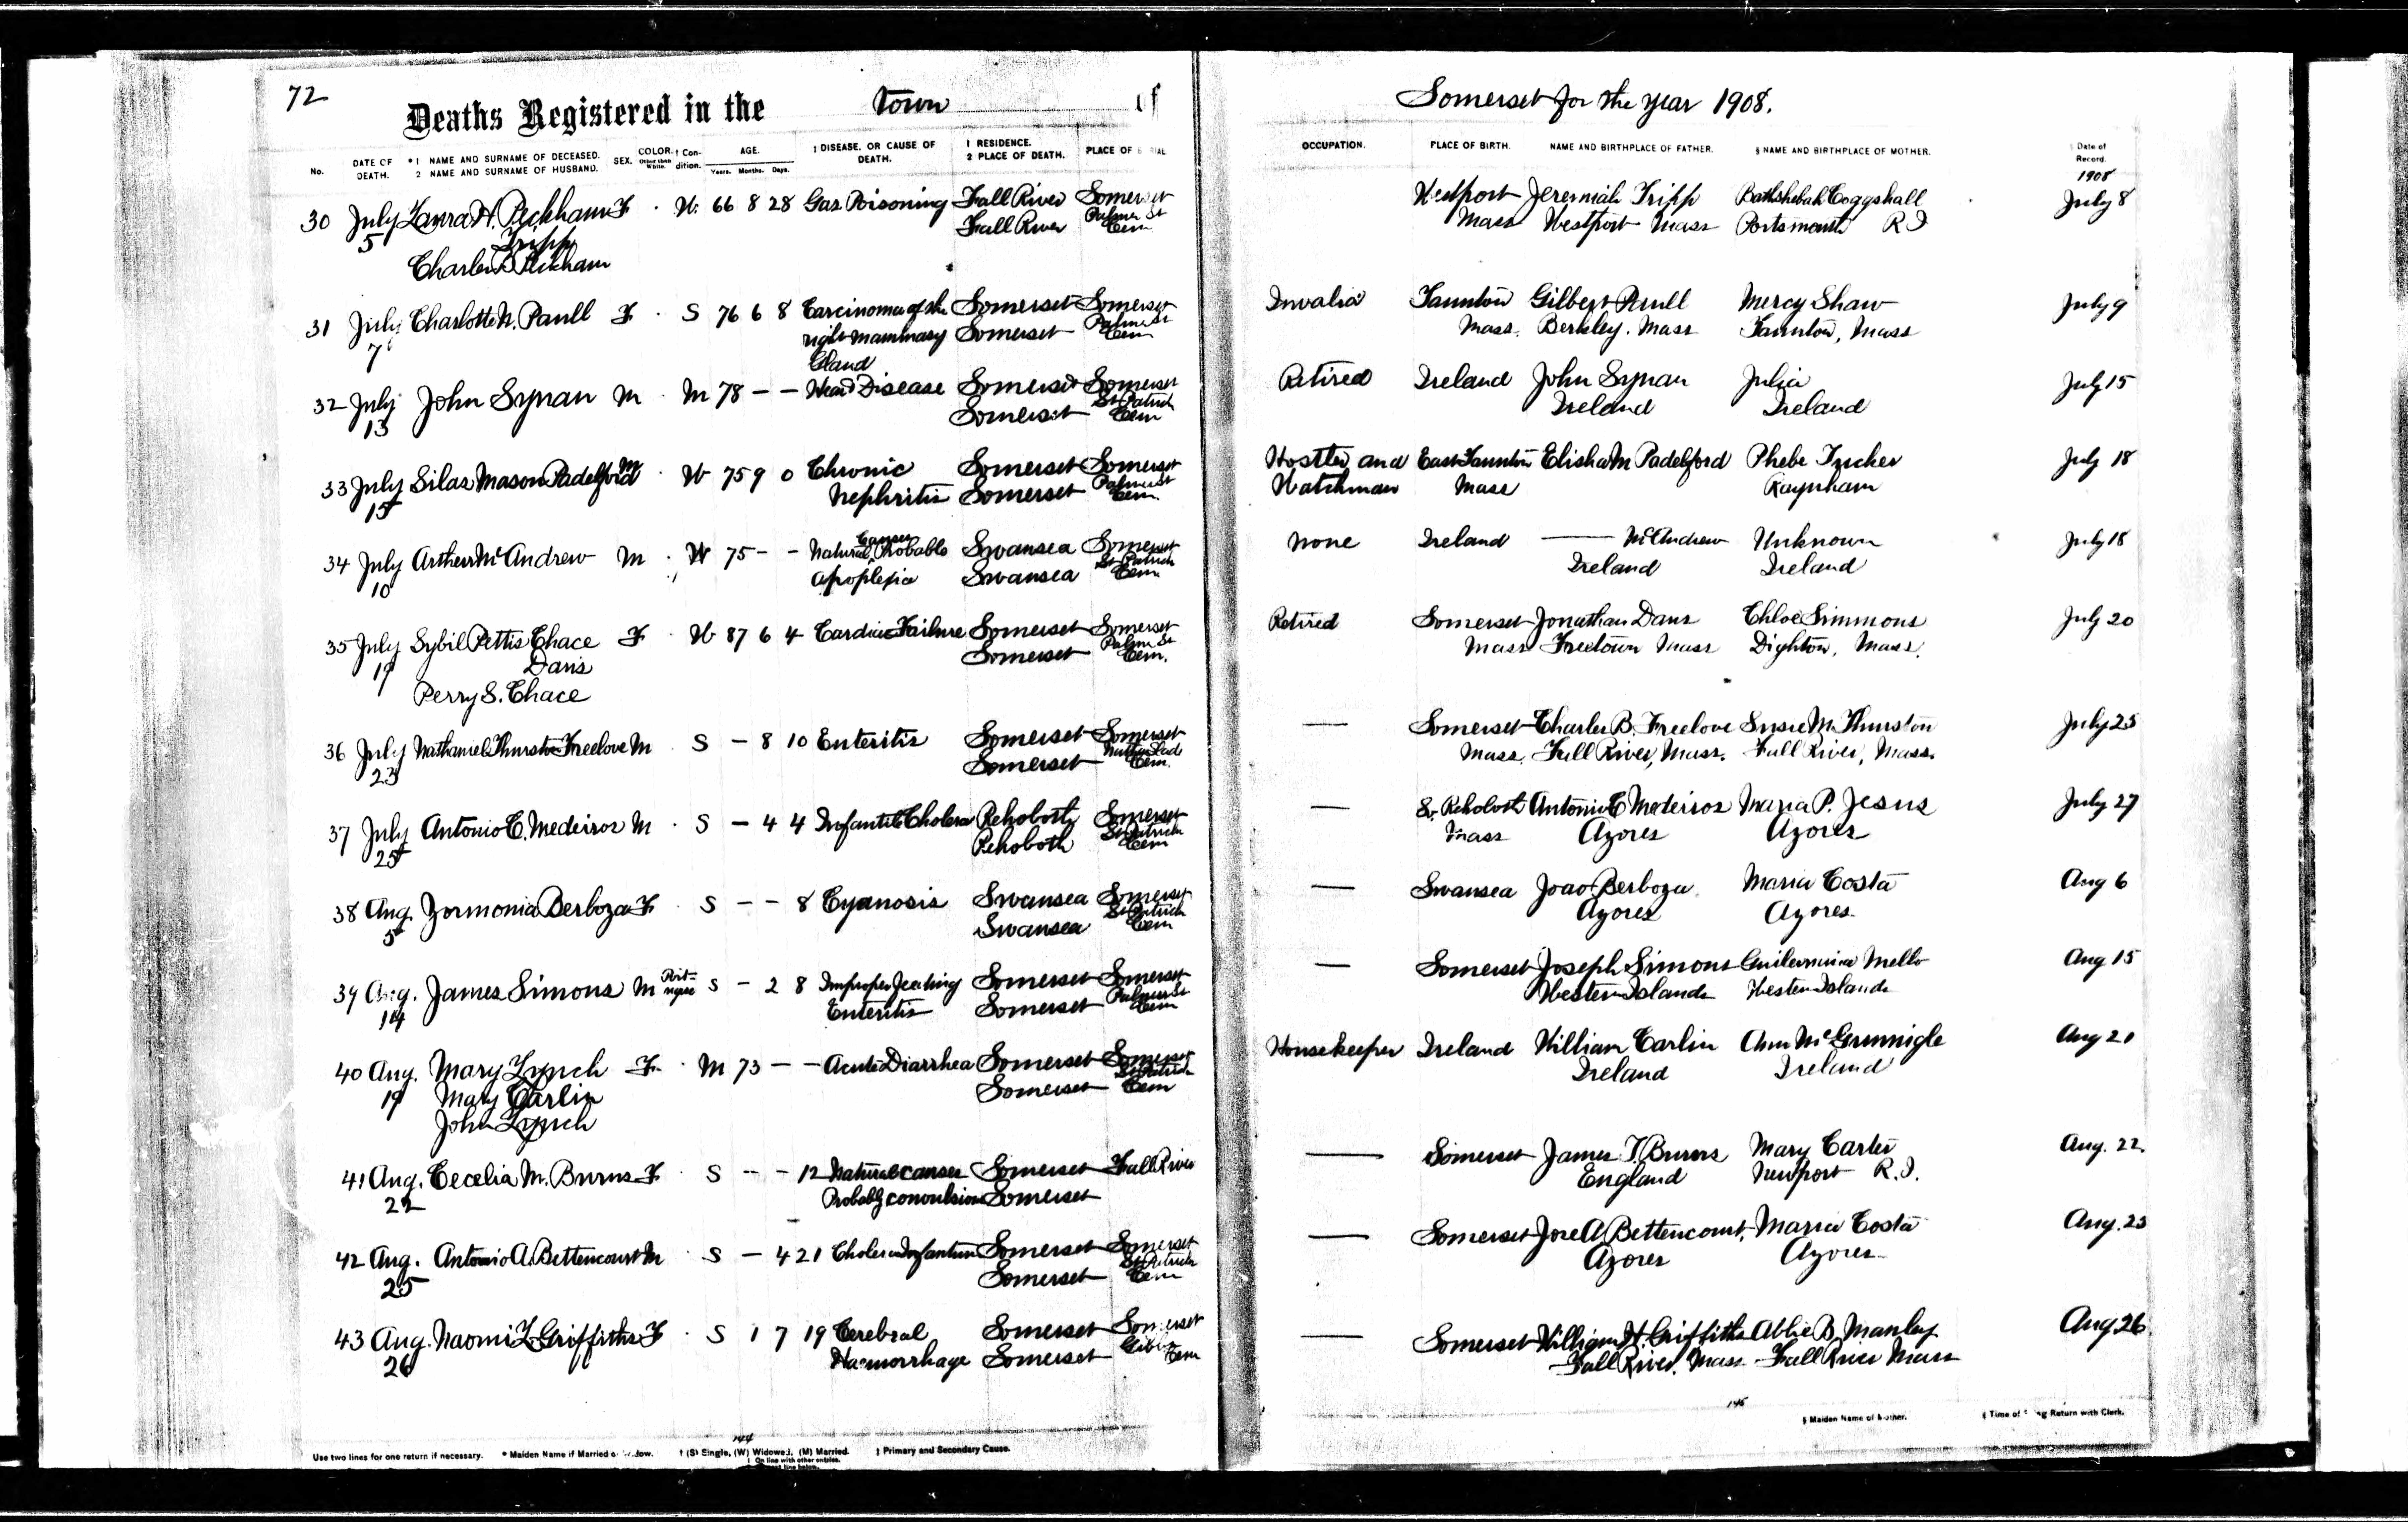 72
Deaths Registered in the Town of
No. DATE OF DEATH. * 1 NAME AND SURNAME OF DECEASED. 2 NAME AND SURNAME OF HUSBAND. SEX. COLOR. Other than White. † Condition. AGE. Years. Months. Days. ‡ DISEASE, OR CAUSE OF DEATH. 1 RESIDENCE. 2 PLACE OF DEATH. PLACE OF
30 July Laura H. Peckham F W. 66 8 28 Gas Poisoning Fall River Somerset
5 Tripp Fall River Palmer St Cem
Charles B Peckham
31 July Charlotte N. Paull F S 76 6 8 Carcinoma of the Somerset Somerset
7 right mammary Somerset Palmer St Cem
Gland
32 July John Synan M M 78 – – Heart Disease Somerset Somerset
13 Somerset St Patrick Cem
33 July Silas Mason Padelford M W 75 9 0 Chronic Somerset Somerset
15 Nephritis Somerset Palmer St Cem.
34 July Arthur McAndrew M W 75 – – Natural Causes Probable Swansea Somerset
10 Apoplexia Swansea St Patrick Cem
35 July Sybil Pettis Chace F W 87 6 4 Cardiac Failure Somerset Somerset
19 Davis Somerset Palmer St Cem.
Perry S. Chace
36 July Nathaniel Thurston Freelove M S – 8 10 Enteritis Somerset Somerset
23 Somerset Cem.
37 July Antonio C. Medeiros M S – 4 4 Infantile Cholera Rehoboth Somerset
25 Rehoboth St Patrick Cem
38 Aug. Zormonia Berboza F S – – 8 Cyanosis Swansea Somerset
5 Swansea St Patrick Cem
39 Aug. James Simons M Portugese S – 2 8 Improper feeding Somerset Somerset
14 Enteritis Somerset Palmer St Cem
40 Aug. Mary Lynch F M 73 – – Acute Diarrhea Somerset Somerset
19 Mary Carlin Somerset St Patrick Cem
John Lynch
41 Aug. Cecelia M. Burns F S – – 12 Natural causes Somerset Fall River
22 Probably convulsions Somerset
42 Aug. Antonio A. Bettencourt M S – 4 21 Cholera Infantum Somerset Somerset
25 Somerset St Patrick Cem
43 Aug. Naomi L Griffiths F S 1 7 19 Cerebral Somerset Somerset
26 Haemorrhage Somerset Cem
144
Use two lines for one return if necessary. * Maiden Name if Married o dow. † (S) Single, (W) Widowed, (M) Married. ‡ Primary and Secondary Cause.
1 On line with other entries.
Somerset for the year 1908.
OCCUPATION. PLACE OF BIRTH. NAME AND BIRTHPLACE OF FATHER. § NAME AND BIRTHPLACE OF MOTHER. Date of Record.
1908
Westport Jeremiah Tripp Bathshebah Coggshall July 8
Mass Westport Mass Portsmouth R I
Invalid Taunton Gilbert Paull Mercy Shaw July 9
Mass. Berkley. Mass Taunton, Mass
Retired Ireland John Synan Julia July 15
Ireland Ireland
Hostler and East Taunton Elisha M Padelford Phebe Tucher July 18
Watchman Mass Raynham
none Ireland —— McAndrew Unknown July 18
Ireland Ireland
Retired Somerset Jonathan Davis Chloe Simmons July 20
Mass Freetown Mass Dighton, Mass.
— Somerset Charles B. Freelove Susie M. Thurston July 25
Mass. Fall River, Mass. Fall River, Mass.
— Rehoboth Antonio C Medeiros Maria P. Jesus July 27
Mass Azores Azores
— Swansea Joao Berboza Maria Costa Aug 6
Azores Azores
— Somerset Joseph Simons Mello Aug 15
Western Islands Western Islands
Housekeeper Ireland William Carlin Ann McGrunnigle Aug 21
Ireland Ireland
— Somerset James T. Burns Mary Carter Aug. 22
England Newport R.I.
— Somerset Jose A Bettencourt. Maria Costa Aug. 25
Azores Azores
— Somerset William H. Griffiths Abbie B Manley Aug 26
Fall River, Mass Fall River Mass
145
§ Maiden Name of Mother. Return with Clerk.